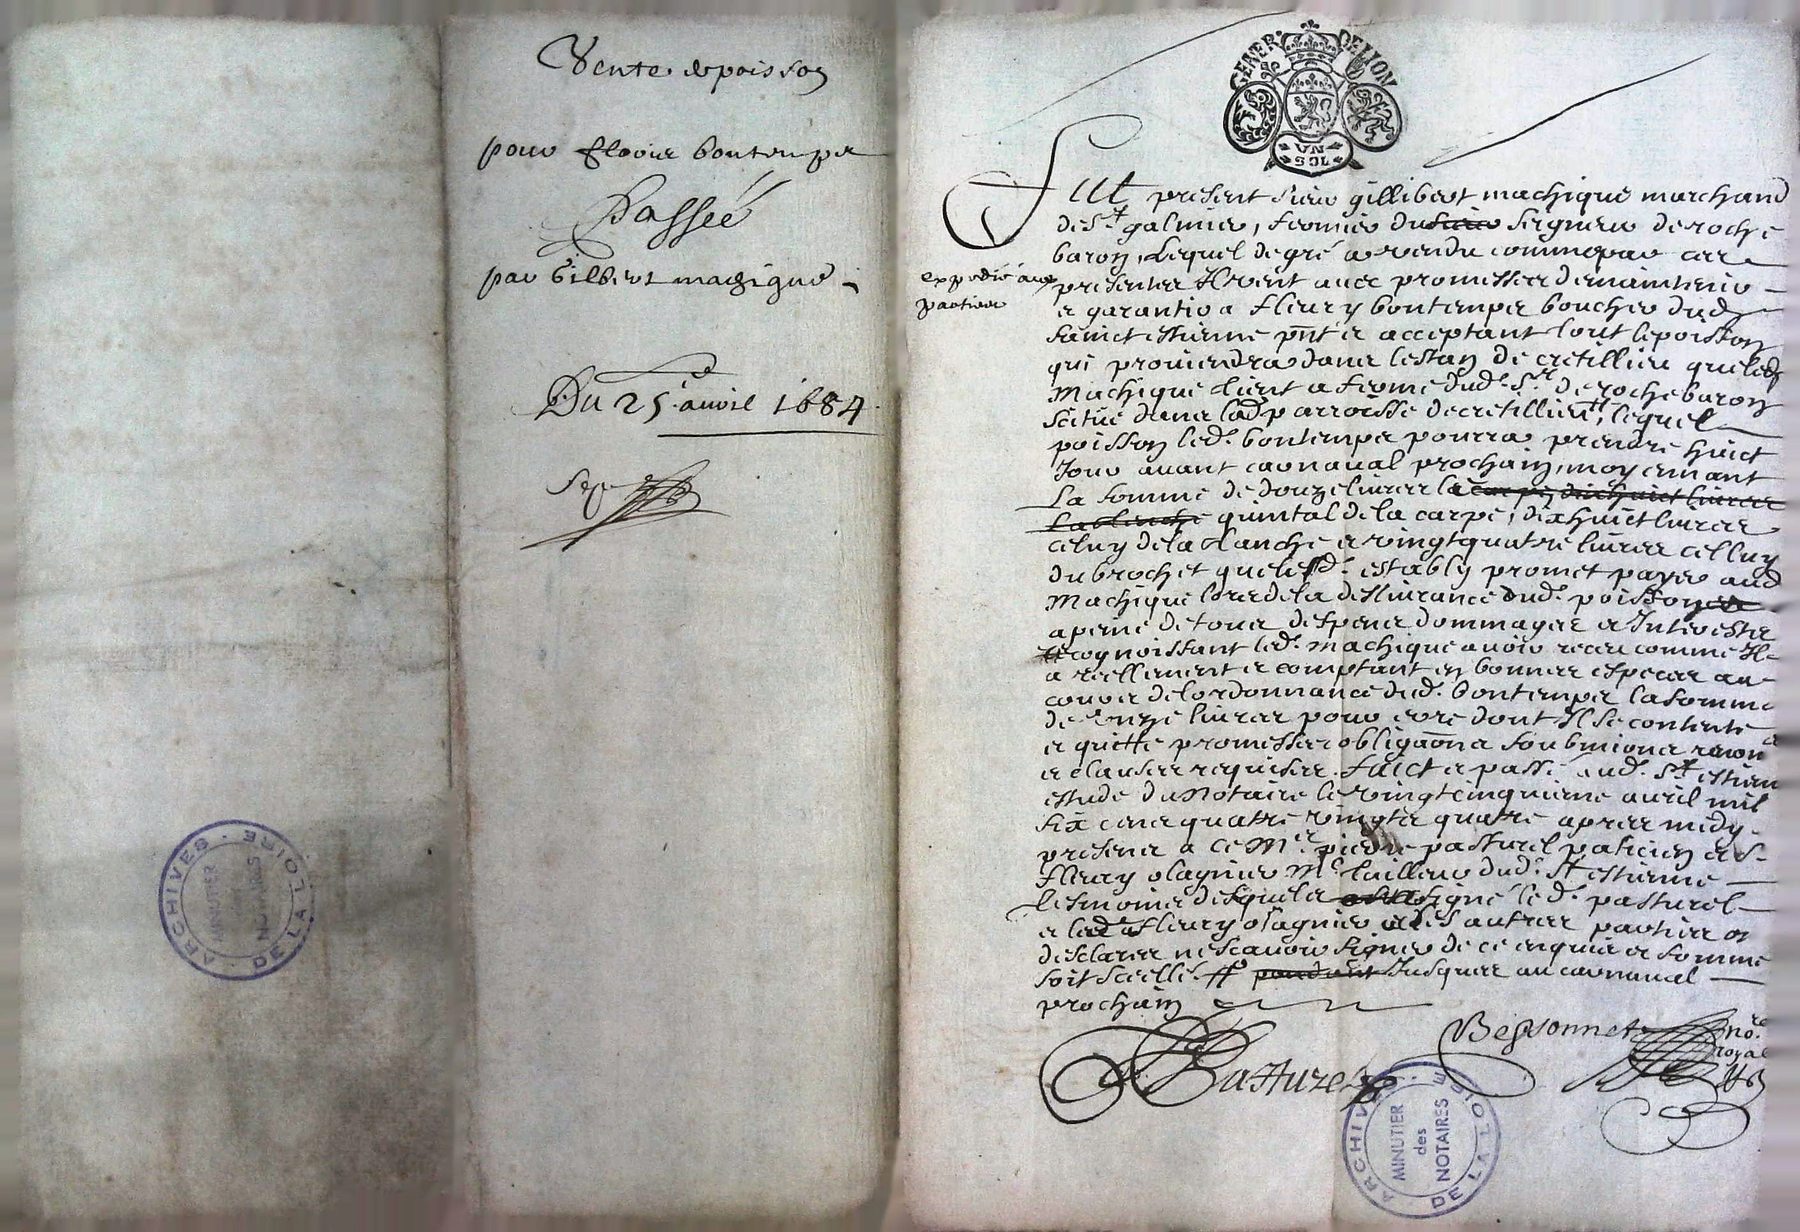 Vente de poisson
pour fleorie bontempz
Passeé
par Gilbert machique
Du 25e auril 1684
ARCHIVES DE LA LOIRE
MINUTIER des NOTAIRES
GENER DE LION
Fut present sieur gillibert machique marchand
de St galmier, fermier du sieur seigneur de roche
baron, Lequel de gré a vendu comme par ces
expedié aux
parties
presentes Il vent auec promesses de maintenir
et garantir a fleury bontemps boucher dud
sainct estienne pnt et acceptant tout le poisson
qui prouiendra dans lestan de cretillieu que led
Machique tient a ferme dud. Sr de rochebaron
scitué dans lad parroisse de cretillieu, lequel
poisson led. bontemps pourra prendre huict
Jour auant carnaual prochain, moyennant
La somme de douze liures la carpe, dixhuict liures
La blanche quintal de la carpe, dixhuict liures
celuy de la tanche et vingtquatre liures celluy
du brochet que led. estably promet payer aud
Machique lors de la desliurance dud. poisson
a peine de tous despens dommages et Interestz
recognoissant led. machique auoir receu comme Il
a reellement et comptant en bonnes especes au
cours de lordonnance dud. bontemps la somme
de onze liures pour erre dont Il se contente
et quitte promesses obligaōns soubmions renon
et clauses requises. faict et passé aud. St estienne
estude du Notaire le vingtcinquieme auril mil
six cens quatre vingtz quatre apres midy
presens a ce Me. pierre pasturel paticien et Sr
fleury olagnier Me tailleur dud. St estienne
tesmoins desquels a signé le d. pasturel
et led fleury olagnier et les autres parties ont
desclarés ne scauoir signer de ce enquis et sommé
soit scellé. pendant Jusques au carnaual
prochain
Pasturel
Bessonnet no.re
royal
ARCHIVES DE LA LOIRE
MINUTIER
des
NOTAIRES